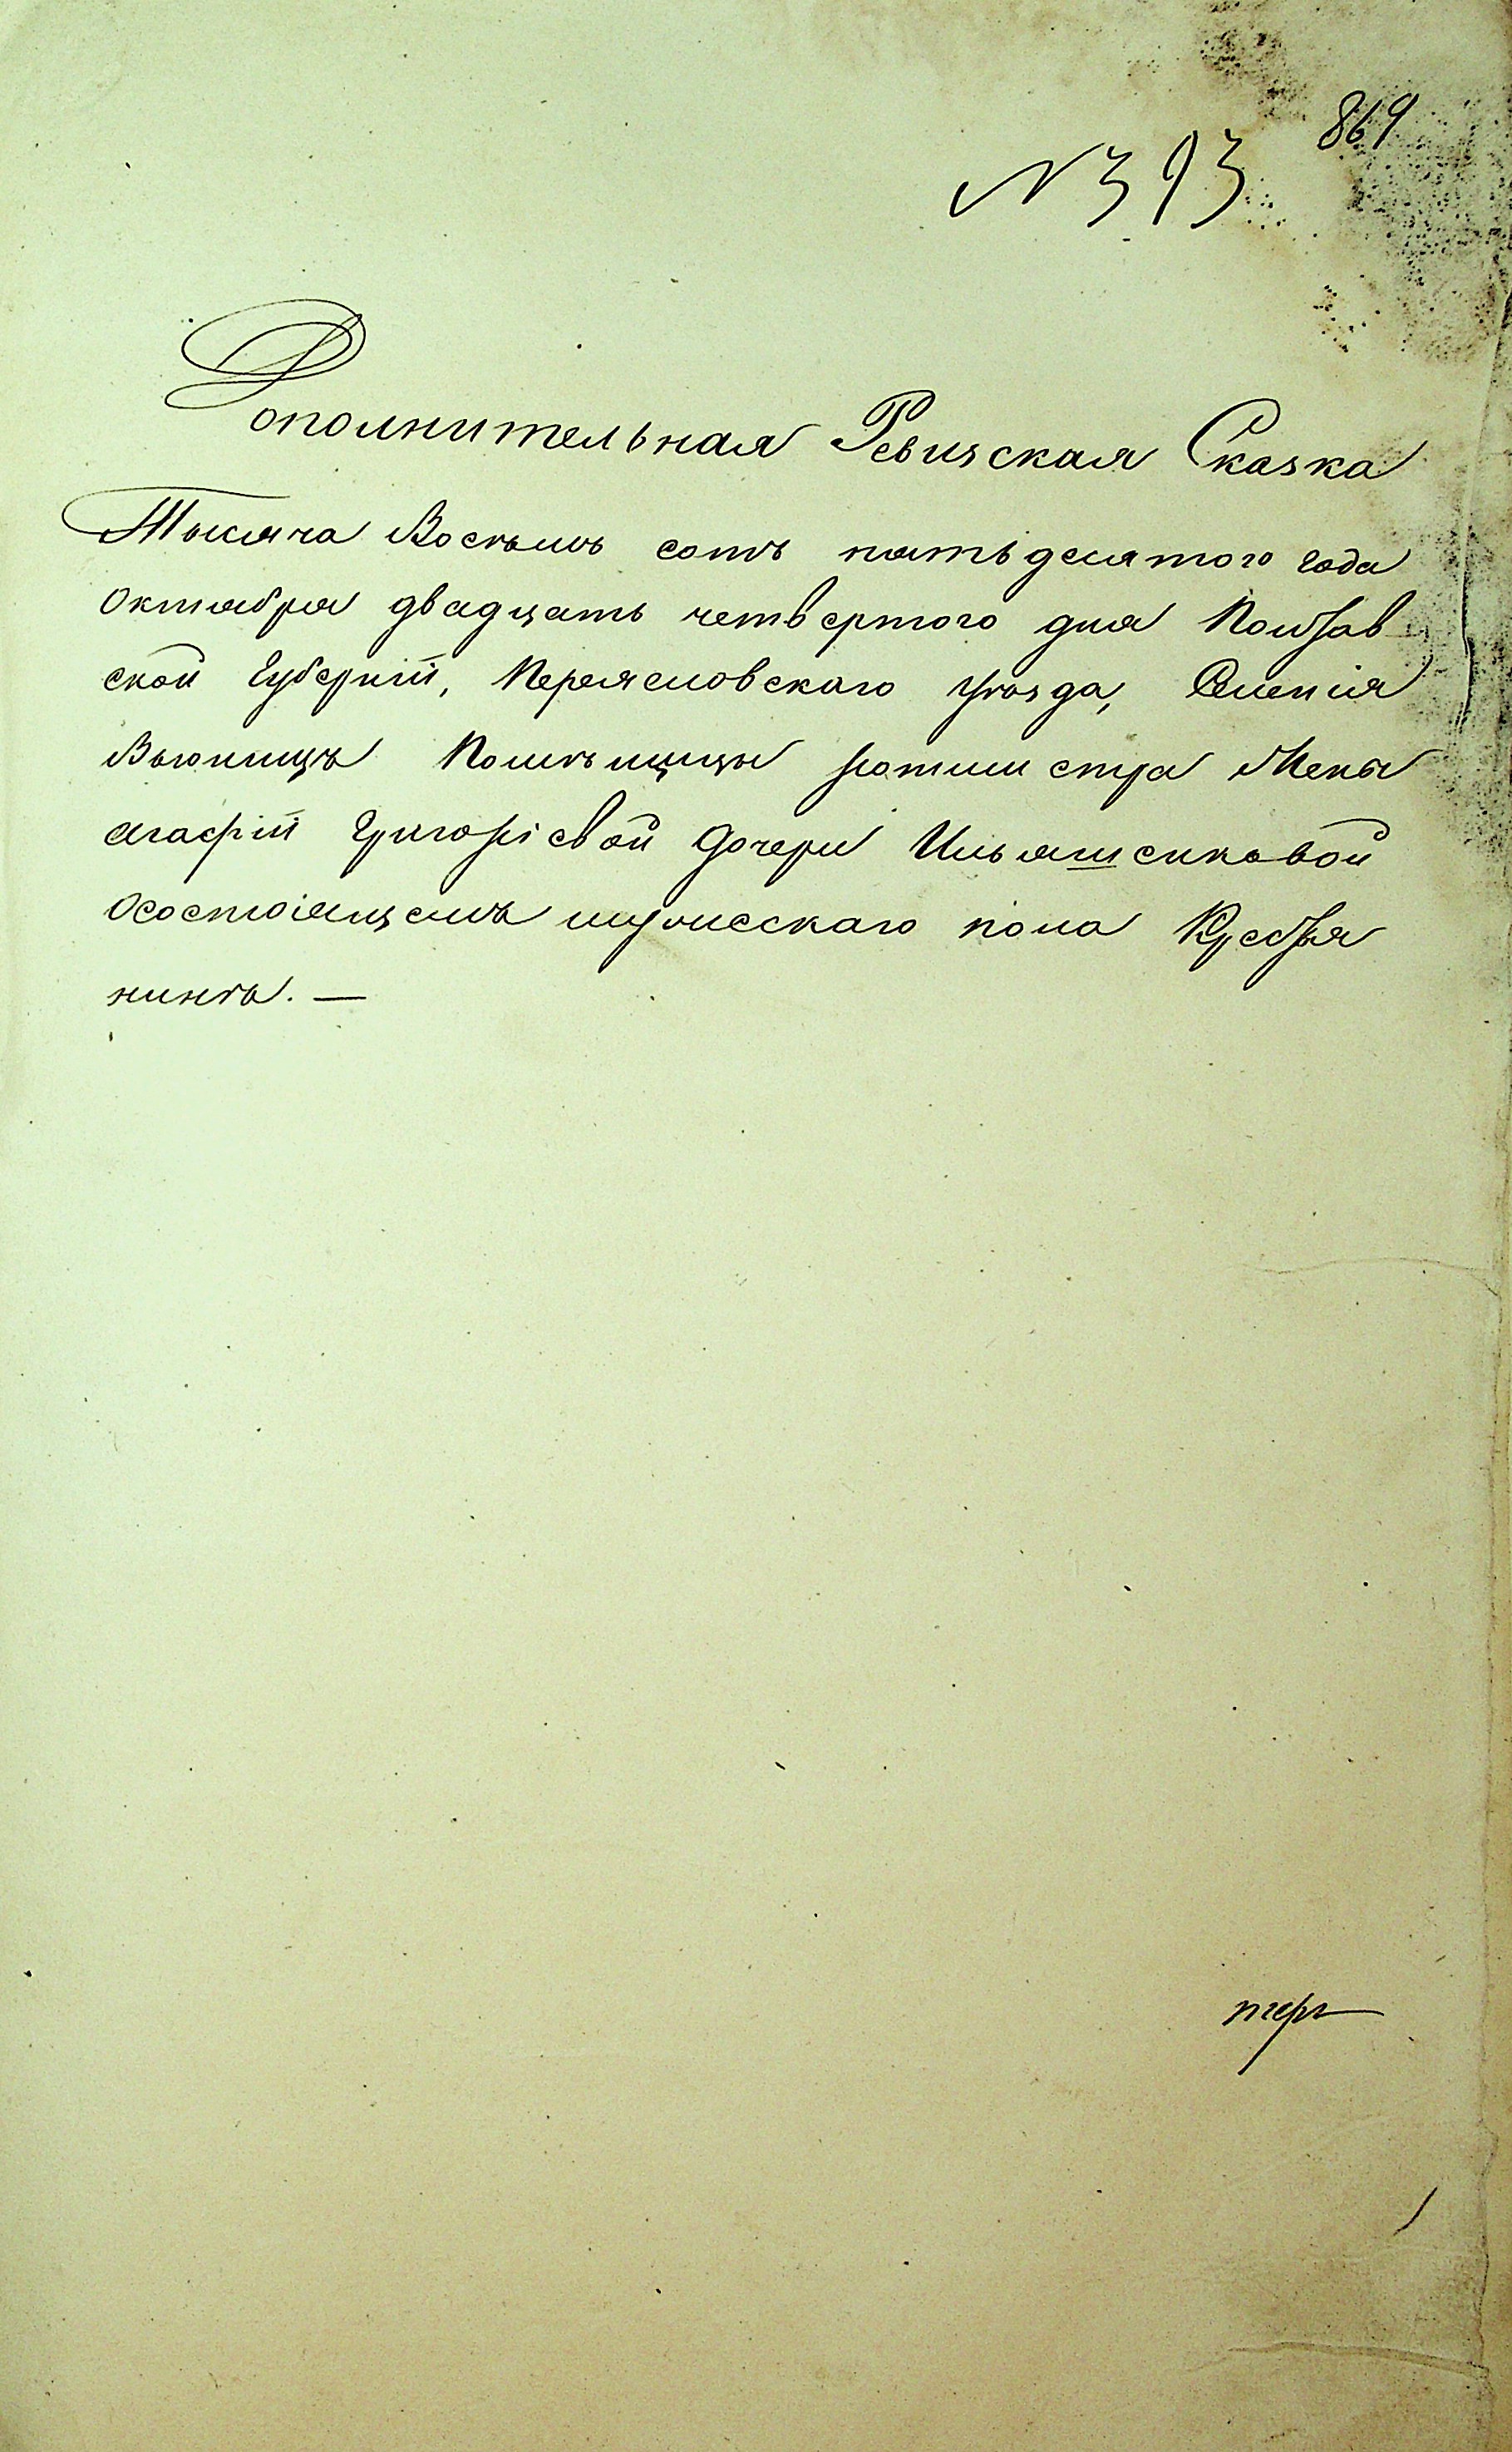 869
N 393
Дополнительная Ревизская Сказка
Тысяча Восѣмь сотъ пятьдесятого года
Октября двадцать четвертого дня Полтав
ской Губерніи, Переясловскаго уѣзда, Селенія
Вьюницъ Помѣщицы ротмистра Жены
агафіи Григоріевой дочери Ильяшенковой
осостоіящемъ мужескаго пола Крестья
нинѣ. —